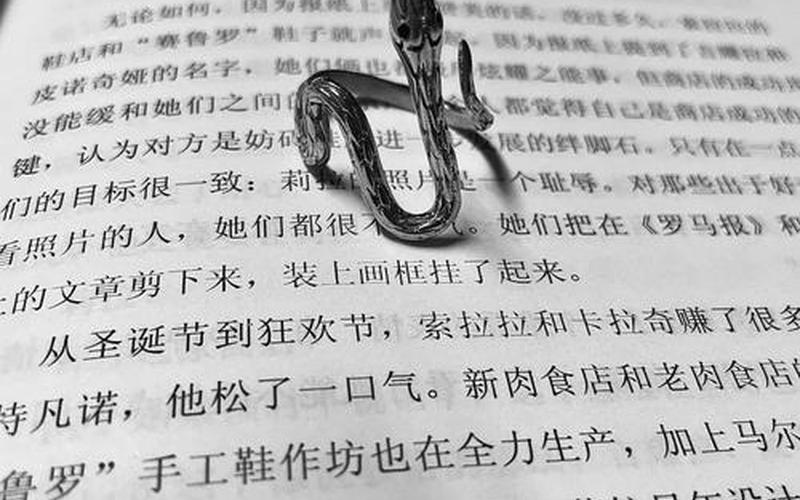 无论如何，因为报纸上
鞋店和“赛鲁罗”鞋子就声 因为报纸上提到了
皮诺奇娅的名字，她们俩也 炫耀之能事，但商店的成功
没能缓和她们之间的 人都觉得自己是商店成功的
键，认为对方是妨碍 进一 展的绊脚石。只有在一点
们的目标很一致：莉拉的照片是一个耻辱。对那些出于好
看照片的人，她们都很不 气。她们把在《罗马报》和
上的文章剪下来，装上画框挂了起来。
从圣诞节到狂欢节，索拉拉和卡拉奇赚了很多
特凡诺，他松了一口气。新肉食店和老肉食店的
鲁罗”手工鞋作坊也在全力生产，加上马尔